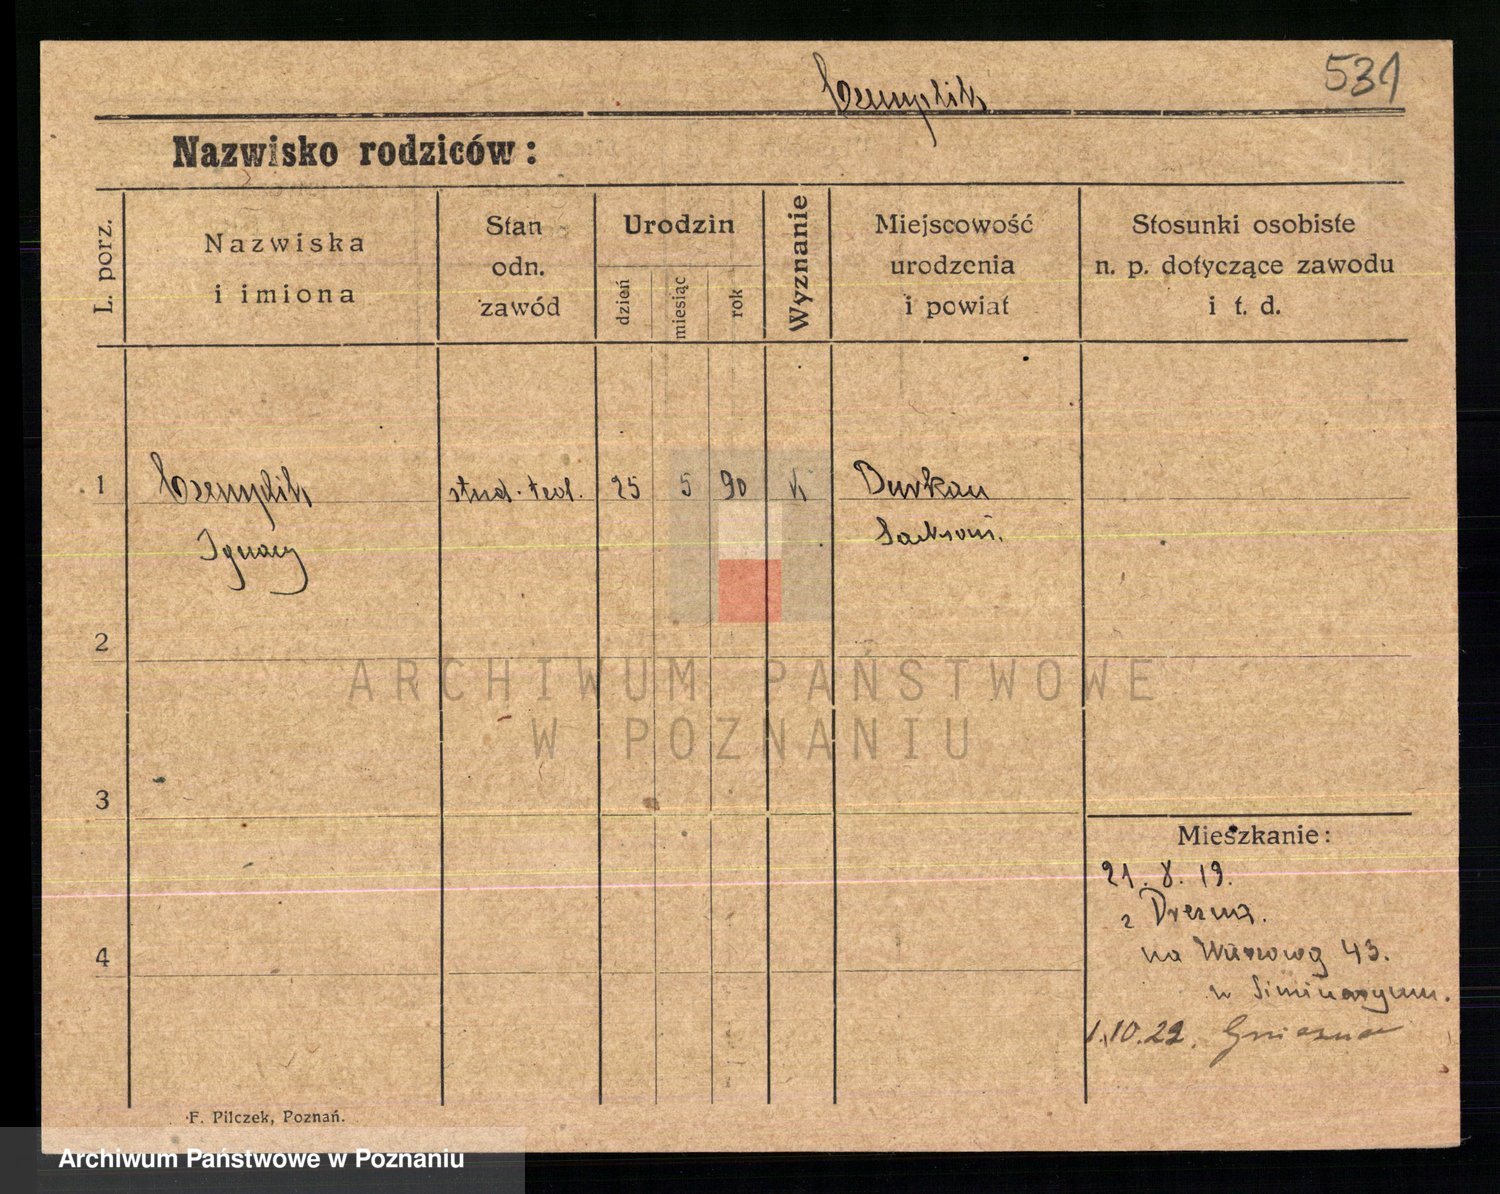 531
Czemplik
Nazwisko rodziców:
L. porz.
Nazwiska
i imiona
Stan
odn.
zawód
Urodzin
dzień
miesiąc
rok
Wyznanie
Miejscowość
urodzenia
i powiat
Stosunki osobiste
n. p. dotyczące zawodu
i t. d.
1 Czemplik stud. teol. 25 5 90 k Burkau
Ignacy Sachsen.
2
ARCHIWUM PAŃSTWOWE
W POZNANIU
3
Mieszkanie:
21. 8. 19.
z Drezna.
4
na Wieżową 43.
w Siminaryum.
1.10.22. Gniezno
F. Pilczek, Poznań.
Archiwum Państwowe w Poznaniu